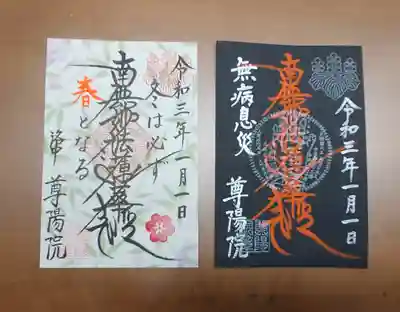 令和三年一月一日
冬は必ず
南無妙法蓮華経
春となる
尊陽院
令和三年一月一日
南無妙法蓮華経
無病息災
尊陽院